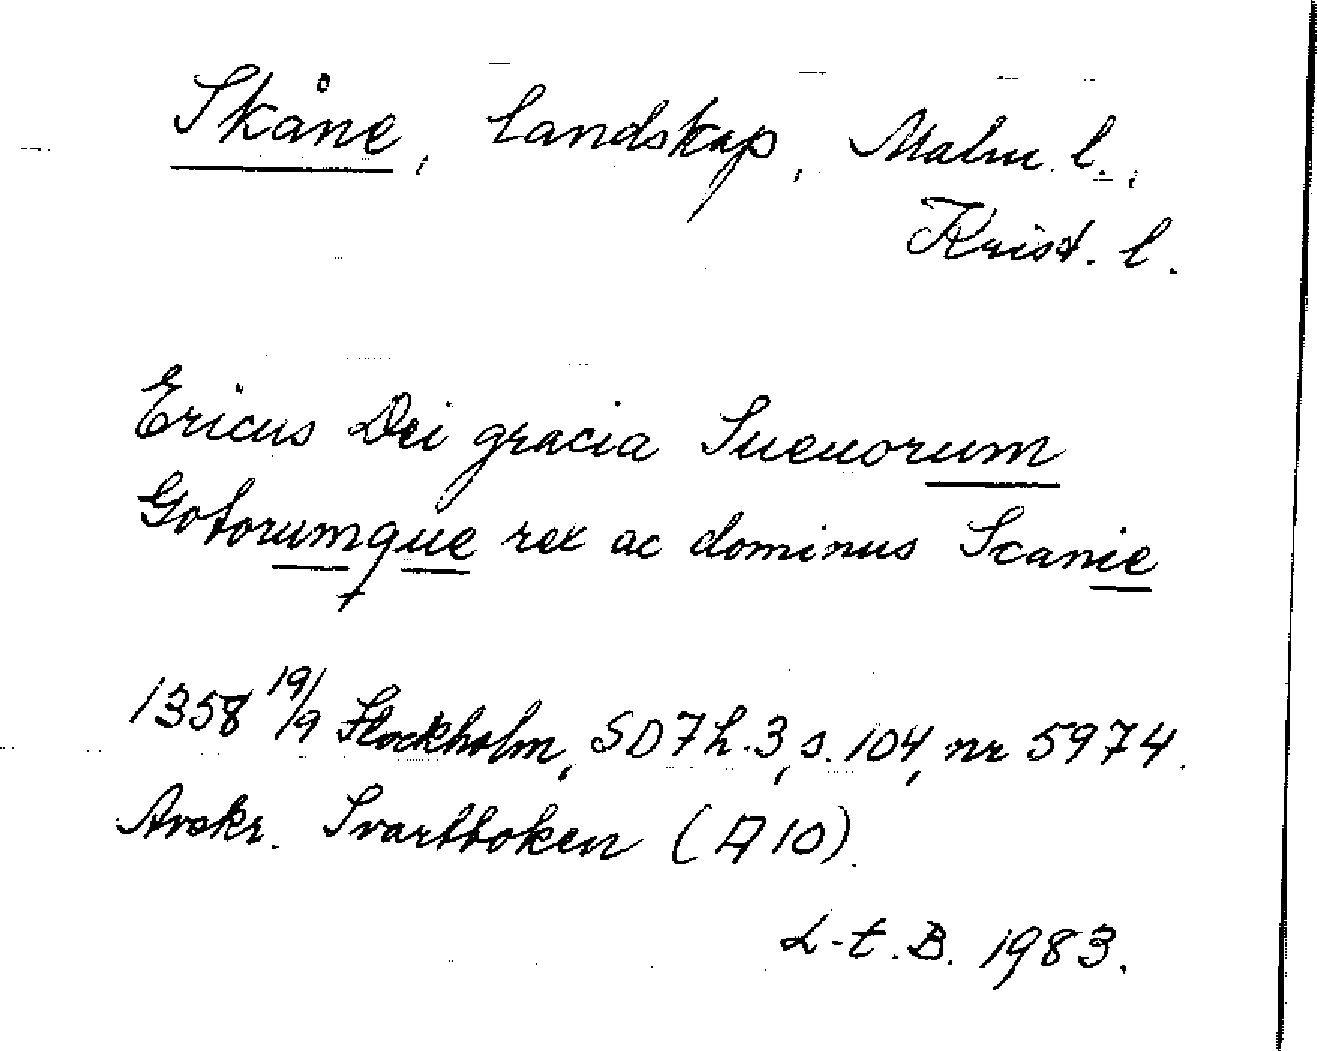 Skåne, landskap, Malm. l.,
Krist. l.
Ericus Dei gracia Sueuorum
Gotorumque rex ac dominus Scanie
1358 19/9 Stockholm, SD 7 h. 3, s. 104, nr 5974.
Avskr. Svartboken (A 10).
L-t. B. 1983.